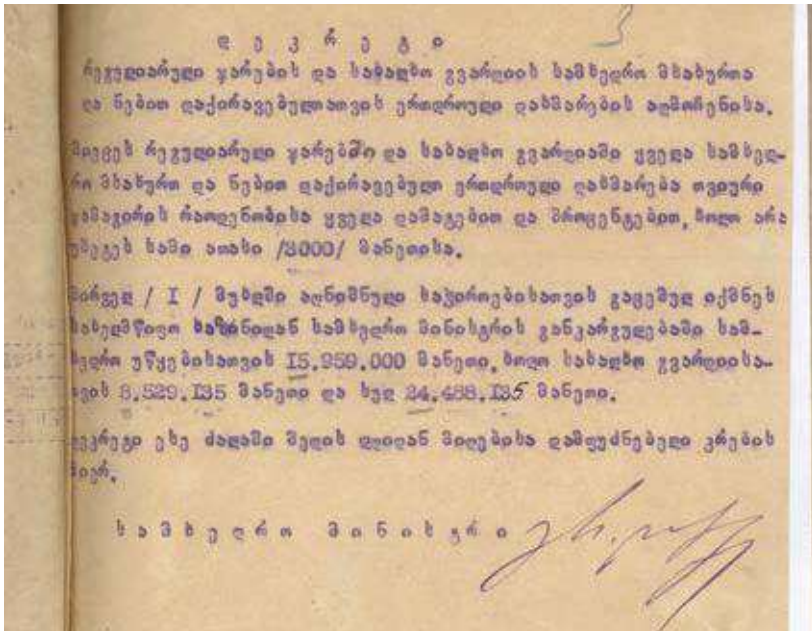 3
დ ე კ რ ე ტ ი
რეგულიარული ჯარების და სახალხო გვარდიის სამხედრო მსახურთა
და ნებით დაქირავებულთათვის ერთდროული დახმარების აღმოჩენისა.
მიეცეს რეგულიარულ ჯარებში და სახალხო გვარდიაში ყველა სამხედ-
რო მსახურთ და ნებით დაქირავებულთ ერთდროული დახმარება თვიური
ჯამაგირის რაოდენობისა ყველა დამატებით და პროცენტებით, ხოლო არა
უმეტეს სამი ათასი /3000/ მანეთისა.
პირველ / I / მუხლში აღნიშნული საჭიროებისათვის გაცემულ იქმნეს
სახელმწიფო ხაზინიდან სამხედრო მინისტრის განკარგულებაში სამ-
ხედრო უწყებისათვის I5.959.000 მანეთი, ხოლო სახალხო გვარდიისა-
თვის 8.529.I35 მანეთი და სულ 24.488.I35 მანეთი.
დეკრეტი ესე ძალაში შედის დღიდან მიღებისა დამფუძნებელი კრების
მიერ.
ს ა მ ხ ე დ რ ო მ ი ნ ი ს ტ რ ი